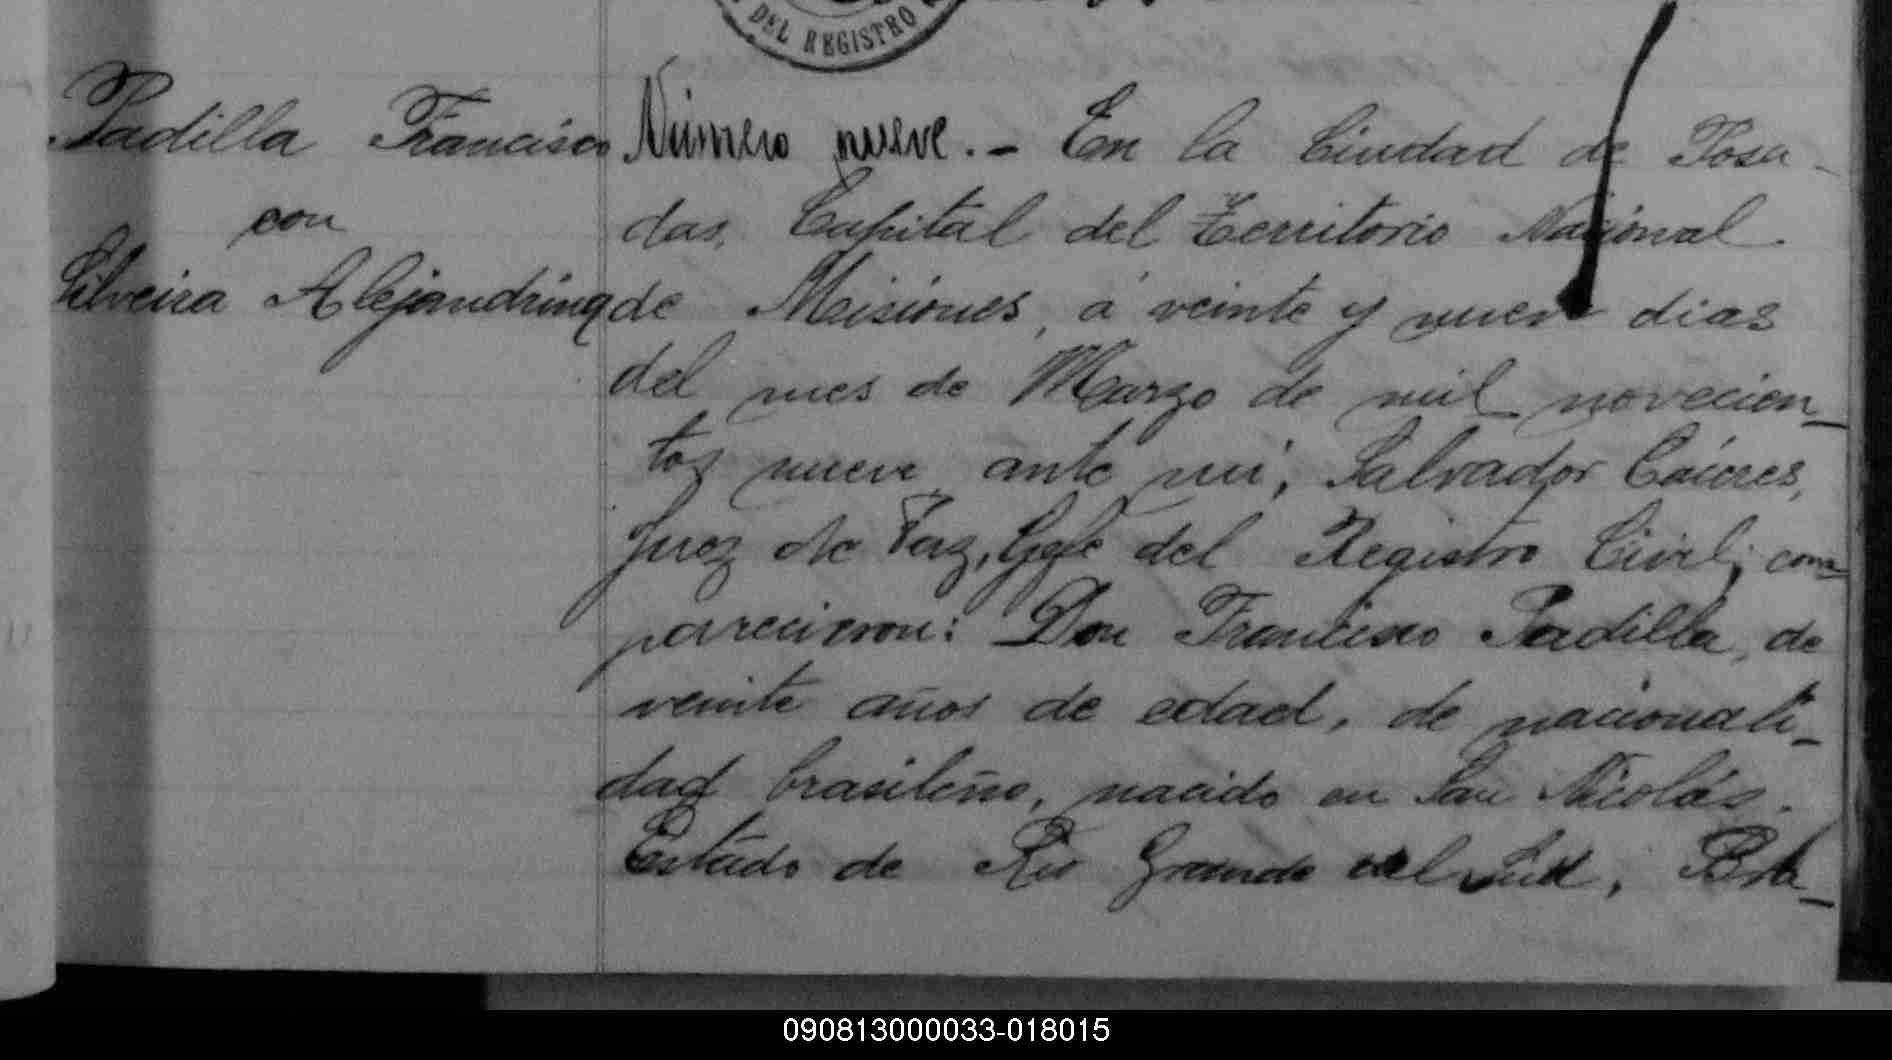 DEL REGISTRO
Padilla Francisco
con
Silveira Alejandrina
Número nueve.- En la Ciudad de Posa-
das, Capital del Territorio Nacional
de Misiones, á veinte y nueve dias
del mes de Marzo de mil novecien-
tos nueve ante mi, Salvador Cáceres,
Juez de Paz, Gefe del Registro Civil; com-
parecieron: Don Francisco Padilla, de
veinte años de edad, de nacionali-
dad brasileño, nacido en San Nicolás,
Estado de Rio Grande del Sud, Bra-
090813000033-018015